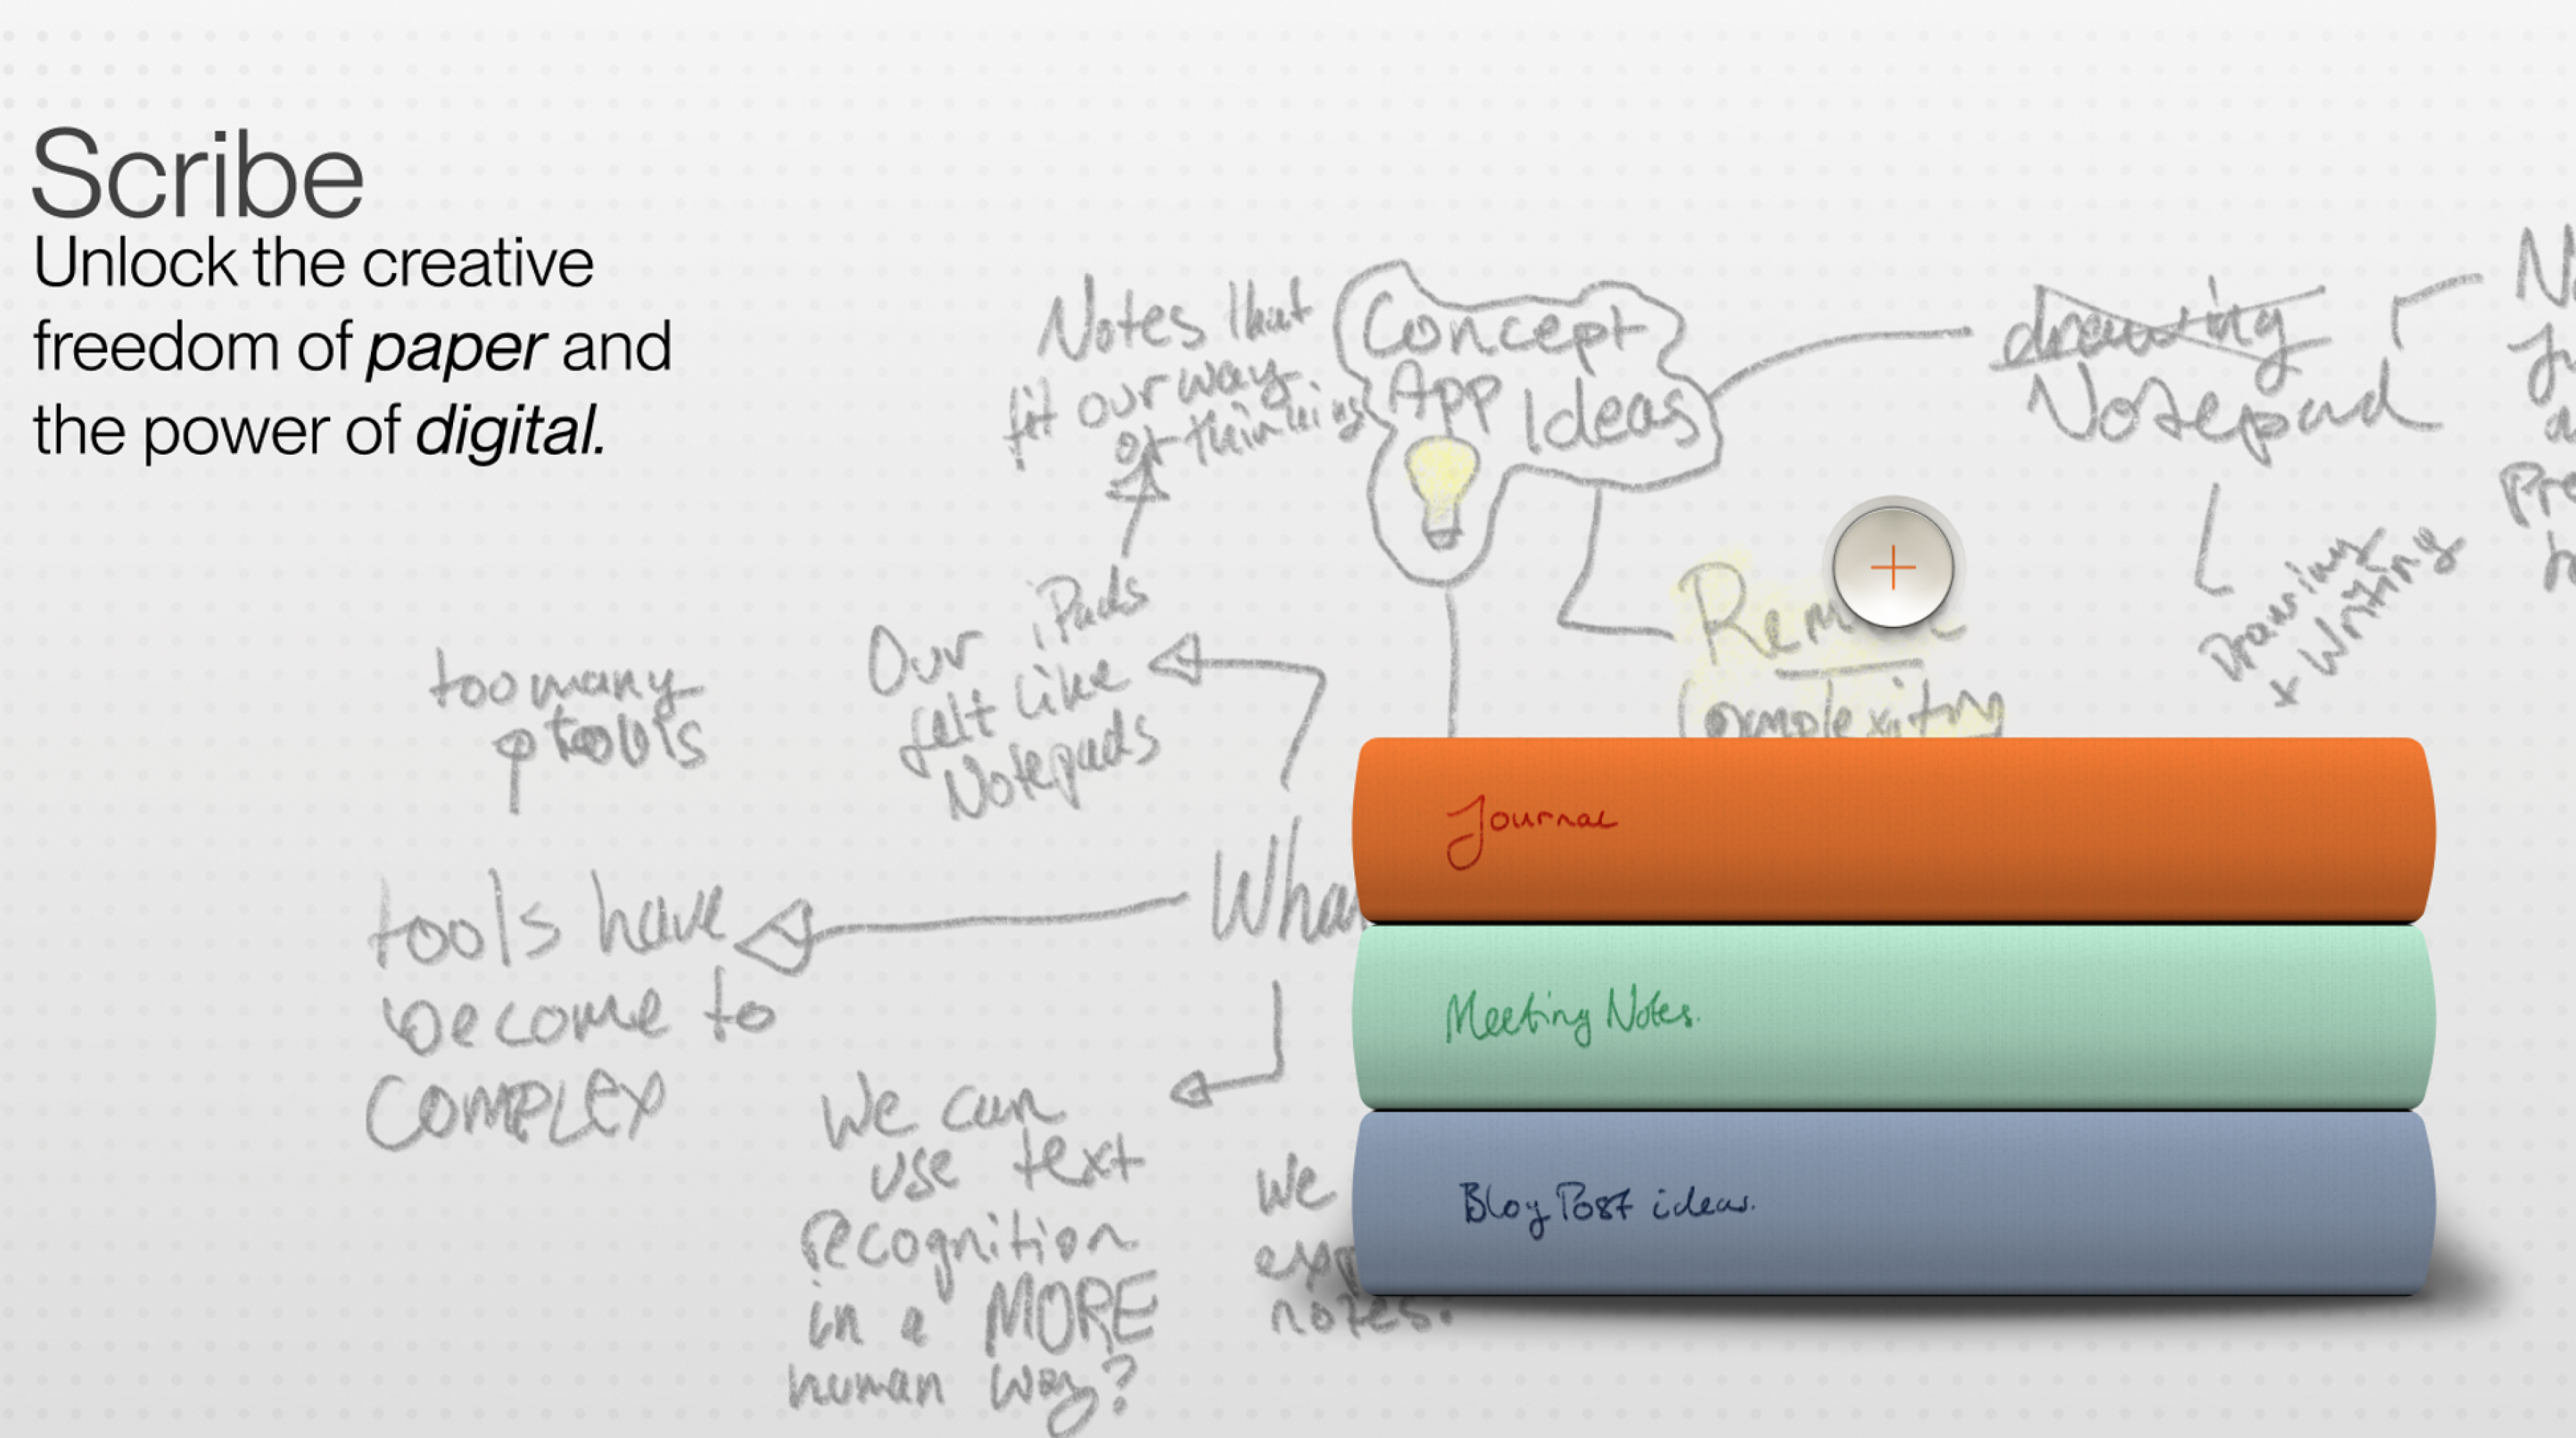 Scribe
Unlock the creative
freedom of paper and
the power of digital.
Notes that
fit our way
of thinking
Concept
App Ideas
drawing
Notepad
Drawing
x Writing
Complexity
Our iPads
felt like
Notepads
too many
tools
tools have
become to
COMPLEX
We can
use text
recognition
in a MORE
human way?
We
notes.
Journal
Meeting Notes.
Blog Post ideas.